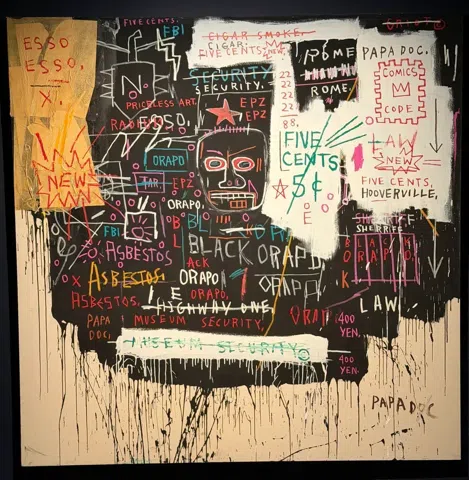 FIVE CENTS.
FBI
CIGAR SMOKE.
CIGAR.
FIVE CENTS.
NEW
ESSO
ESSO.
X.
N
ROME
ROME
PAPA DOC.
COMICS
CODE
SECURITY
SECURITY.
22
22
22
22
88.
PRICELESS ART.
EPZ
EPZ
ESSO.
FIVE
CENTS
5¢
E
LAW
NEW
FIVE CENTS,
HOOVERVILLE,
NEW
ORAPO
TAR.
EPZ
ORAPO.
FBI
ASBESTOS
BLACK ORAPO
ACK
ORAPO
ORAPO
ORAPO.
SHERIFF
SHERIFF
ASBESTOS.
ASBESTOS.
HIGHWAY ONE
LAW
PAPA
DOC.
MUSEUM SECURITY.
400
YEN.
MUSEUM SECURITY
400
YEN.
PAPA DOC